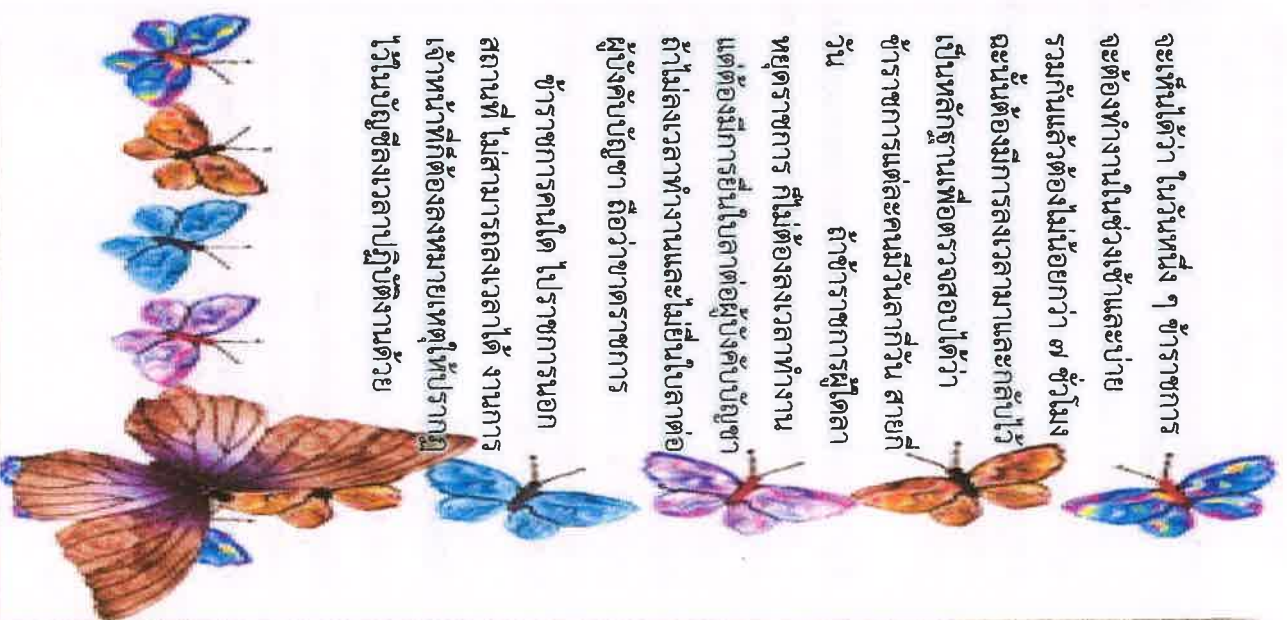 จะเห็นได้ว่า ในวันหนึ่ง ๆ ข้าราชการ
จะต้องทำงานในช่วงเช้าและบ่าย
รวมกันแล้วต้องไม่น้อยกว่า ๗ ชั่วโมง
ฉะนั้นต้องมีการลงเวลามาและกลับไว้
เป็นหลักฐานเพื่อตรวจสอบได้ว่า
ข้าราชการแต่ละคนมีวันลากี่วัน สายกี่
วัน ถ้าข้าราชการผู้ใดลา
หยุดราชการ ก็ไม่ต้องลงเวลาทำงาน
แต่ต้องมีการยื่นใบลาต่อผู้บังคับบัญชา
ถ้าไม่ลงเวลาทำงานและไม่ยื่นใบลาต่อ
ผู้บังคับบัญชา ถือว่าขาดราชการ
ข้าราชการคนใด ไปราชการนอก
สถานที่ ไม่สามารถลงเวลาได้ งานการ
เจ้าหน้าที่ก็ต้องลงหมายเหตุให้ปรากฏ
ไว้ในบัญชีลงเวลาปฏิบัติงานด้วย